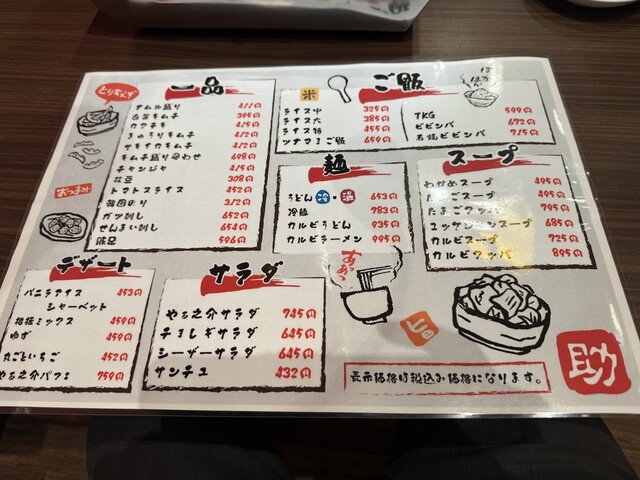 とりあえず
一品
ナムル盛り 411円
白菜キムチ 395円
カクテキ 415円
きゅうりキムチ 412円
サキイカキムチ 412円
キムチ盛り合わせ 698円
チャンジャ 415円
308円
トマトスライス 452円
韓国のり 312円
ガツ刺し 652円
せんまい刺し 654円
596円
おつまみ
ご飯
米
ライス中 325円
ライス大 385円
ライス特 455円
ツナマヨご飯 659円
TKG 599円
ビビンバ 672円
石焼ビビンバ 715円
麺
うどん 冷 温 653円
冷麺 783円
カルビうどん 935円
カルビラーメン 995円
スープ
わかめスープ 495円
たまごスープ 495円
たまごクッパ 795円
ユッケジャンスープ 685円
カルビスープ 725円
カルビクッパ 895円
デザート
バニラアイス 453円
シャーベット
柑橘ミックス 459円
ゆず 459円
丸ごといちご 452円
759円
サラダ
サラダ 745円
チョレギサラダ 645円
シーザーサラダ 645円
サンチュ 432円
旨
助
表示価格は税込み価格になります。